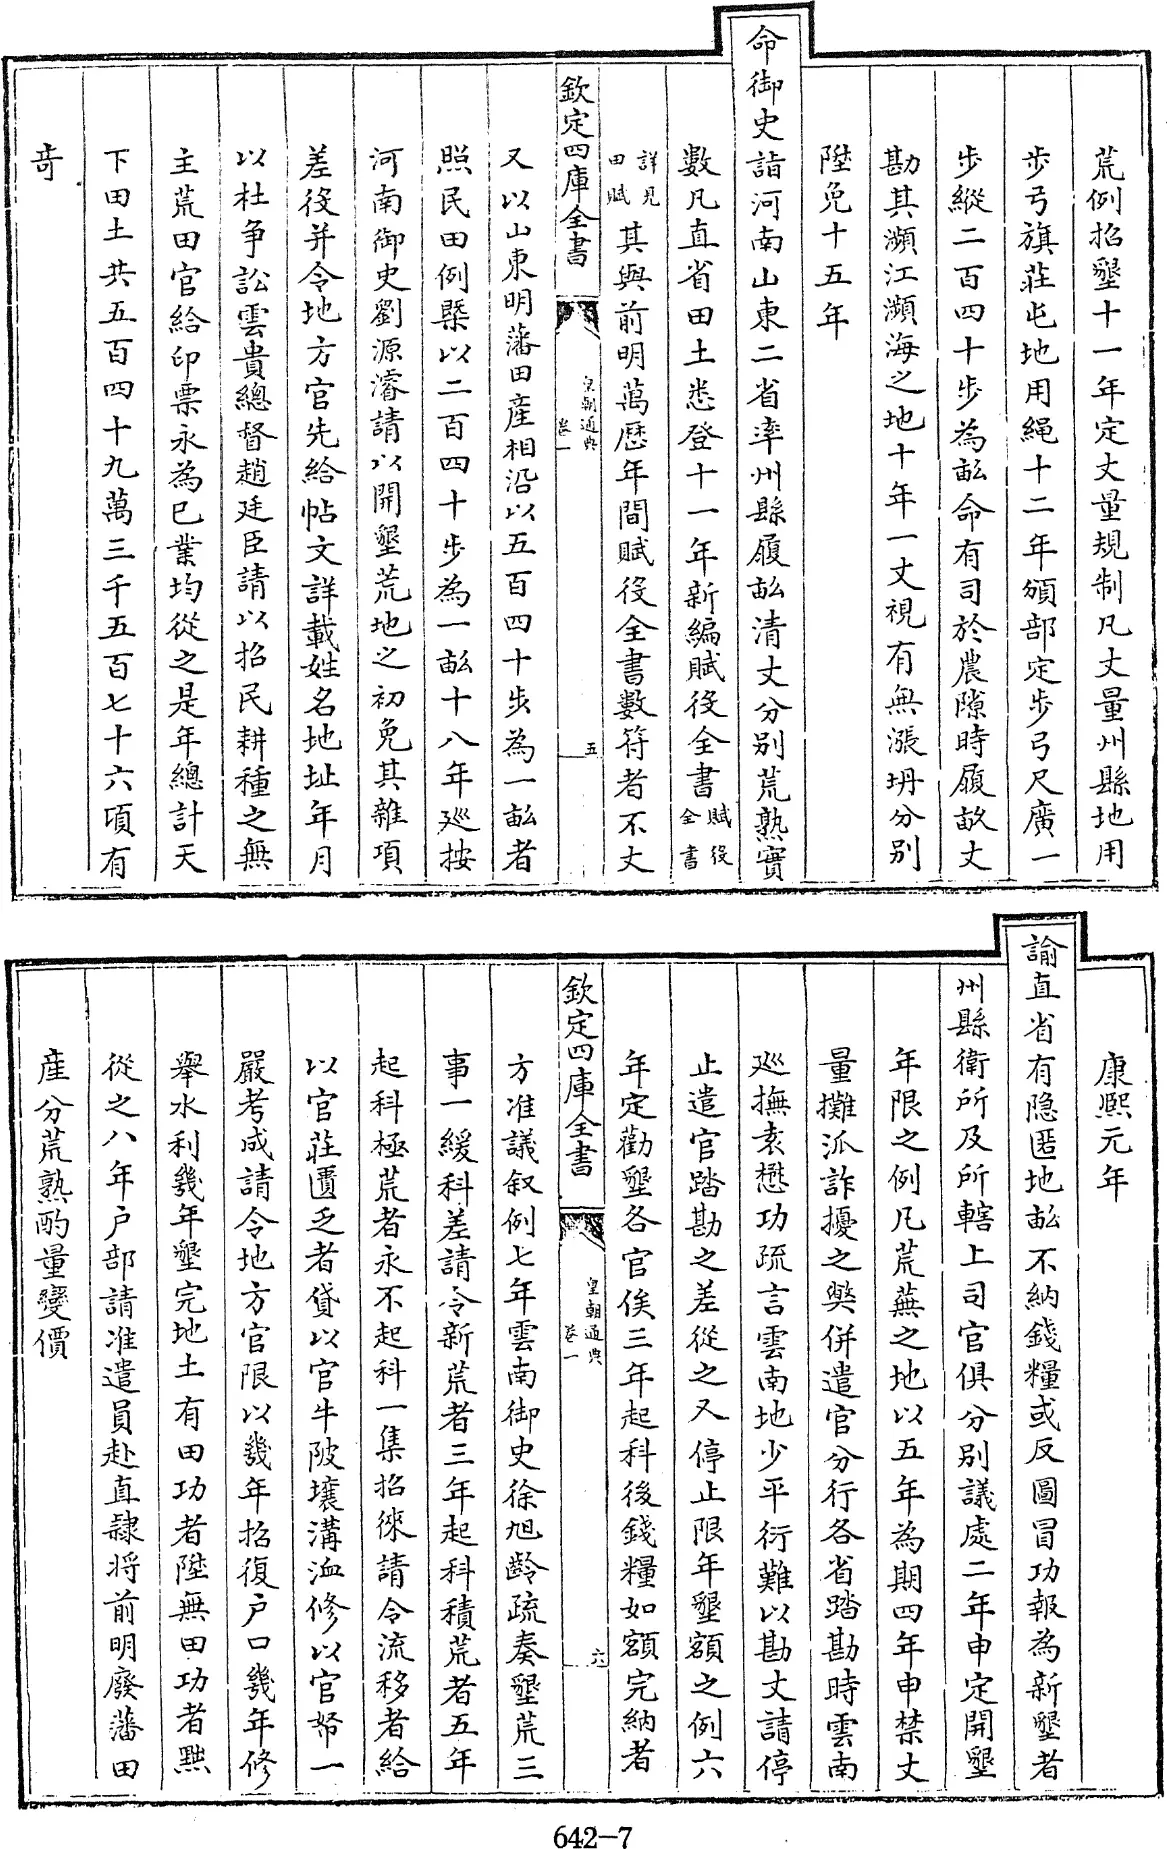 荒例招墾十一年定丈量規制凡丈量州縣地用
步弓旗莊屯地用繩十二年頒部定步弓尺廣一
步縱二百四十步為畝命有司於農隙時履畝丈
勘其瀕江瀕海之地十年一丈視有無漲坍分别
陞免十五年
命御史詣河南山東二省率州縣履畝清丈分别荒熟實
數凡直省田土悉登十一年新編賦役全書賦役全書
詳見田賦其與前明萬歷年間賦役全書數符者不丈
欽定四庫全書
皇朝通典
卷一
五
又以山東明藩田產相沿以五百四十步為一畝者
照民田例槩以二百四十步為一畝十八年廵按
河南御史劉源濬請以開墾荒地之初免其雜項
差役并令地方官先給帖文詳載姓名地址年月
以杜争訟雲貴總督趙廷臣請以招民耕種之無
主荒田官給印票永為已業均從之是年總計天
下田土共五百四十九萬三千五百七十六頃有
奇
康熙元年
諭直省有隐匿地畝不納錢糧或反圖冒功報為新墾者
州縣衛所及所轄上司官俱分别議處二年申定開墾
年限之例凡荒蕪之地以五年為期四年申禁丈
量攤派詐擾之獘併遣官分行各省踏勘時雲南
廵撫袁懋功疏言雲南地少平衍難以勘丈請停
止遣官踏勘之差從之又停止限年墾額之例六
年定勸墾各官俟三年起科後錢糧如額完納者
欽定四庫全書
皇朝通典
卷一
六
方准議叙例七年雲南御史徐旭齡疏奏墾荒三
事一緩科差請令新荒者三年起科積荒者五年
起科極荒者永不起科一集招徠請令流移者給
以官莊匱乏者貸以官牛陂壤溝洫修以官帑一
嚴考成請令地方官限以幾年招復户口幾年修
舉水利幾年墾完地土有田功者陞無田功者黜
從之八年户部請准遣員赴直隷將前明廢藩田
產分荒熟酌量變價
642-7